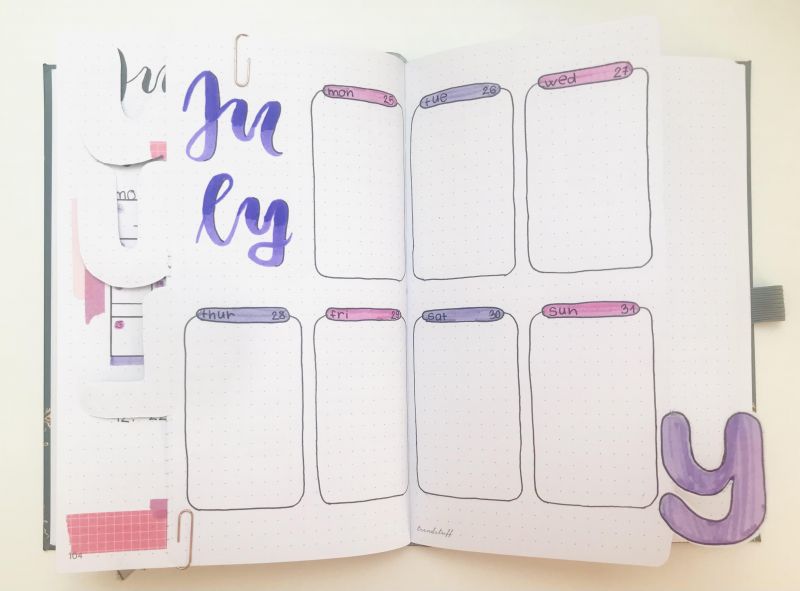 Ju
ly
mon 25
tue 26
wed 27
thur 28
fri 29
sat 30
sun 31
Ju
mo
5
y
104